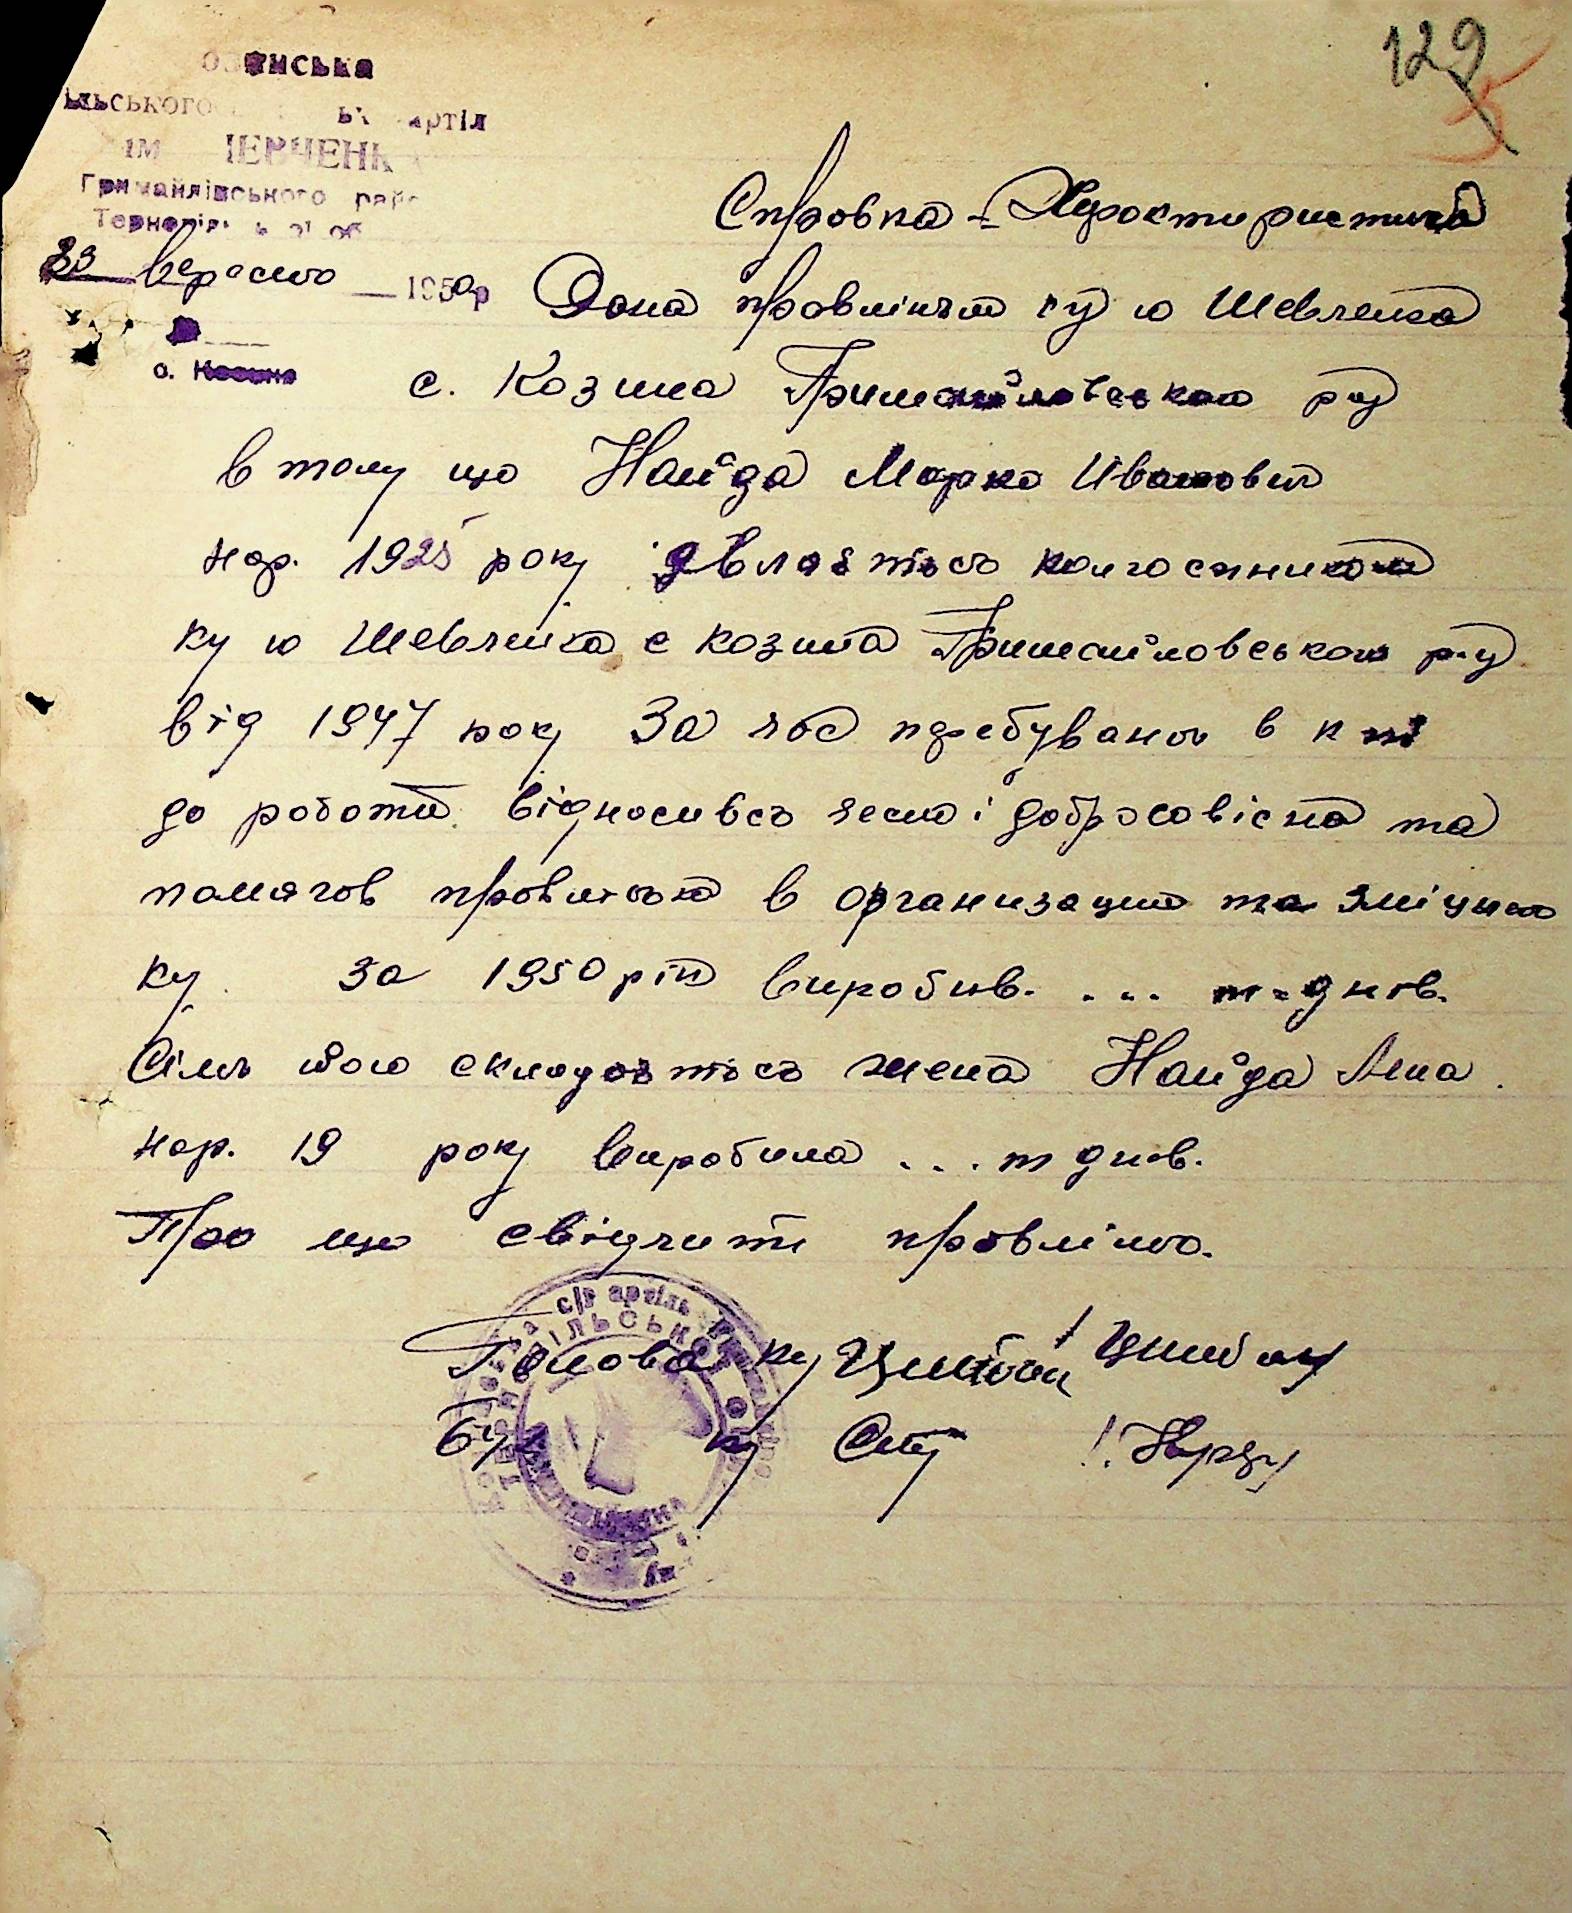 129
5
озинська
ільського ртіл
ім ШЕВЧЕНК
Гримайлівського рай
Тернопільської об
23 вересня 1950р
с. Козина
Справка - Характиристика
Дана правлінням к-у ім Шевченка
с. Козина Гримайловського р-ну
в тому що Найда Марко Иванович
нар. 1925 року являэться колгоспником
к-у ім Шевченка с Козина Гримайловського р-у
від 1947 року За час перебування в к-пі
до роботи відносивсь чесно і добросовісно та
помагав правлінню в организации та зміцнен
к-у. За 1950 рік виробив. ... т-днів.
Сімя його складаэться жена Найда Анна
нар. 19 року виробила ... т днів.
Про що свідчить правління.
Голова к-у /Цимбал
Бух к-у